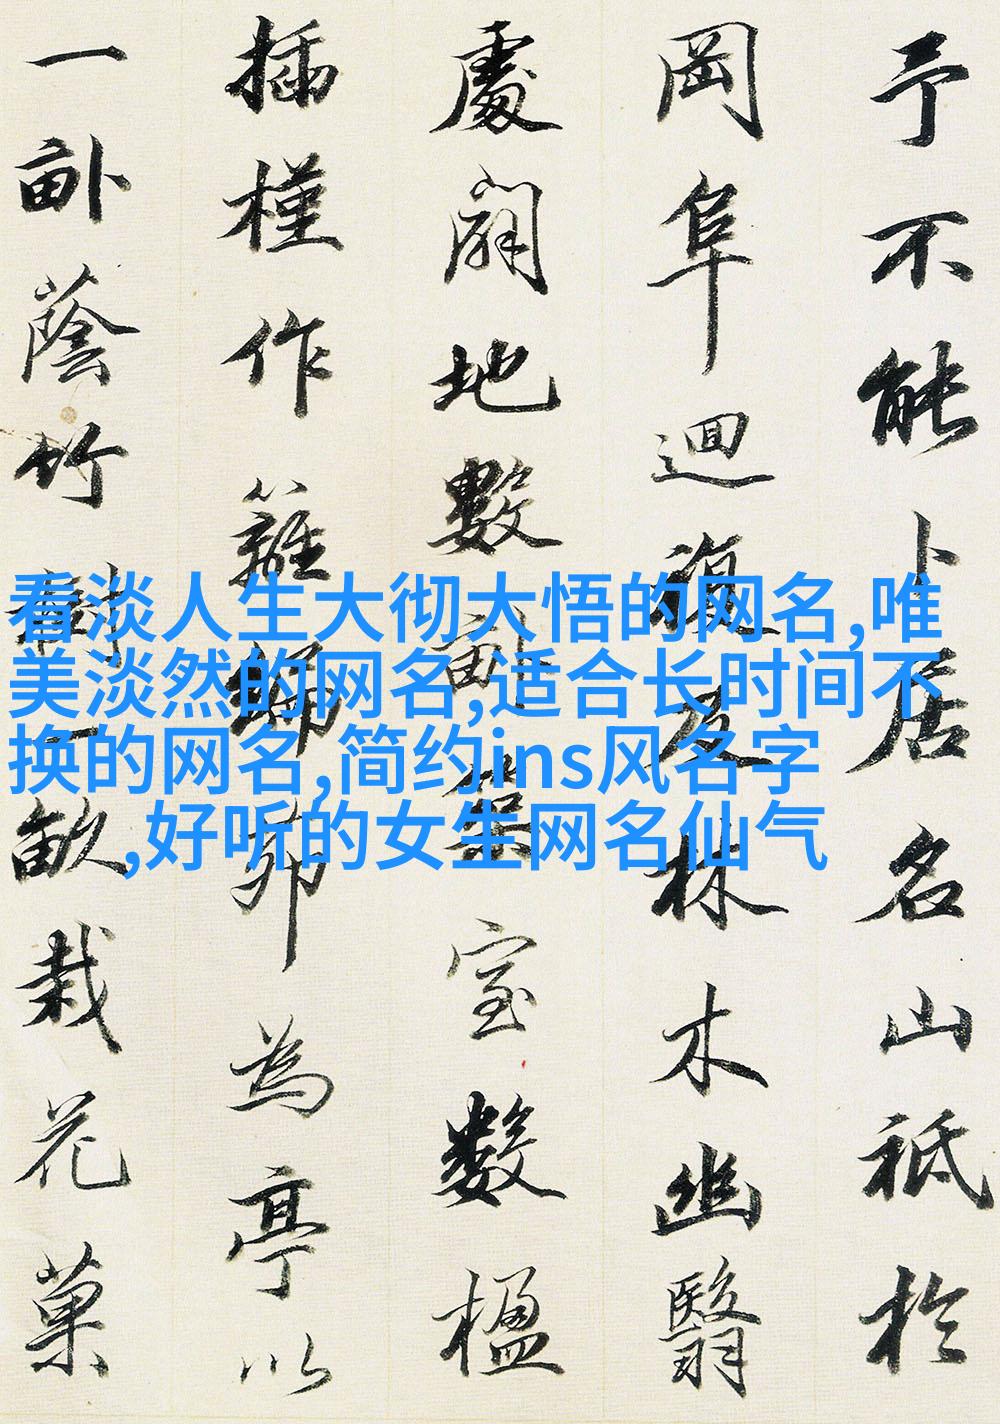 予不能卜居名山祗於
岡阜迴復及林木幽翳
處闢地數畝築室數楹
插槿作籬編茆為亭以
一畝蔭竹樹一畝栽花菓
看淡人生大彻大悟的网名,唯
美淡然的网名,适合长时间不
换的网名,简约ins风名字
,好听的女生网名仙气